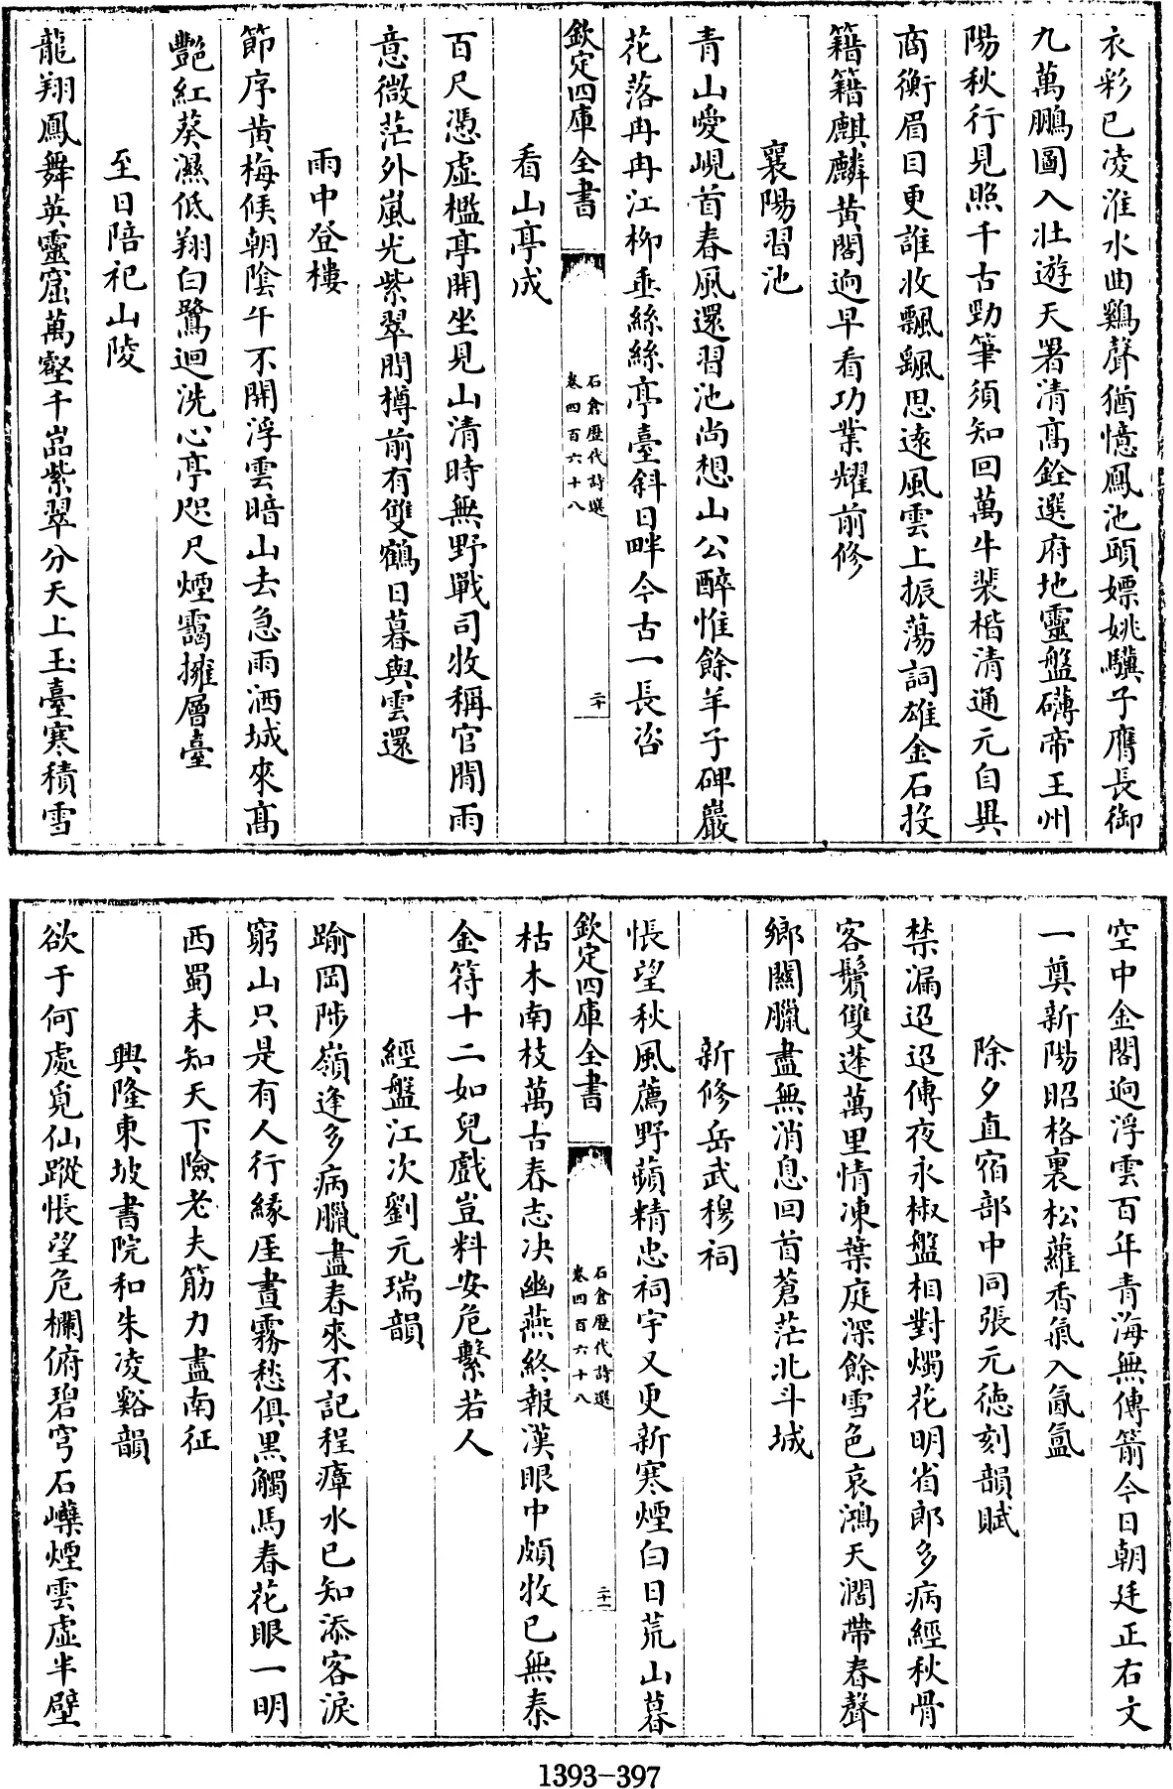 衣彩已凌淮水曲鷄聲猶憶鳳池頭嫖姚驥子鷹長御
九萬鵬圖入壯遊天署清髙銓選府地靈盤礴帝王州
陽秋行見照千古勁筆須知回萬牛裴楷清通元自異
商衡眉目更誰收飄飄思逺風雲上振蕩詞雄金石投
籍籍麒麟黄閣逈早看功業耀前修
襄陽習池
青山愛峴首春風還習池尚想山公醉惟餘羊子碑巖
花落冉冉江栁垂絲絲亭臺斜日畔今古一長咨
欽定四庫全書
石倉歴代詩選
卷四百六十八
二十
看山亭成
百尺憑虚檻亭開坐見山清時無野戰司牧稱官閒雨
意微茫外嵐光紫翠間樽前有雙鶴日暮與雲還
雨中登樓
節序黄梅候朝陰午不開浮雲暗山去急雨洒城來髙
艷紅葵濕低翔白鷺迴洗心亭咫尺煙靄擁層臺
至日陪祀山陵
龍翔鳳舞英靈窟萬壑千嵓紫翠分天上玉臺寒積雪
空中金閣逈浮雲百年青海無傳箭今日朝廷正右文
一奠新陽昭格裏松蘿香氣入氤氲
除夕直宿部中同張元徳刻韻賦
禁漏迢迢傳夜永椒盤相對燭花明省郎多病經秋骨
客鬢雙蓬萬里情凍葉庭深餘雪色哀鴻天濶帶春聲
鄉關臘盡無消息回首蒼茫北斗城
新修岳武穆祠
悵望秋風薦野蘋精忠祠宇又更新寒煙白日荒山暮
欽定四庫全書
石倉歴代詩選
卷四百六十八
二十一
枯木南枝萬古春志决幽燕終報漢眼中頗牧已無秦
金符十二如兒戲豈料安危繫若人
經盤江次劉元瑞韻
踰岡陟嶺逢多病臘盡春來不記程瘴水已知添客淚
窮山只是有人行緣厓晝霧愁俱黒觸馬春花眼一明
西蜀未知天下險老夫筋力盡南征
興隆東坡書院和朱凌谿韻
欲于何處覓仙蹤悵望危欄俯碧穹石㠔煙雲虚半壁
1393-397